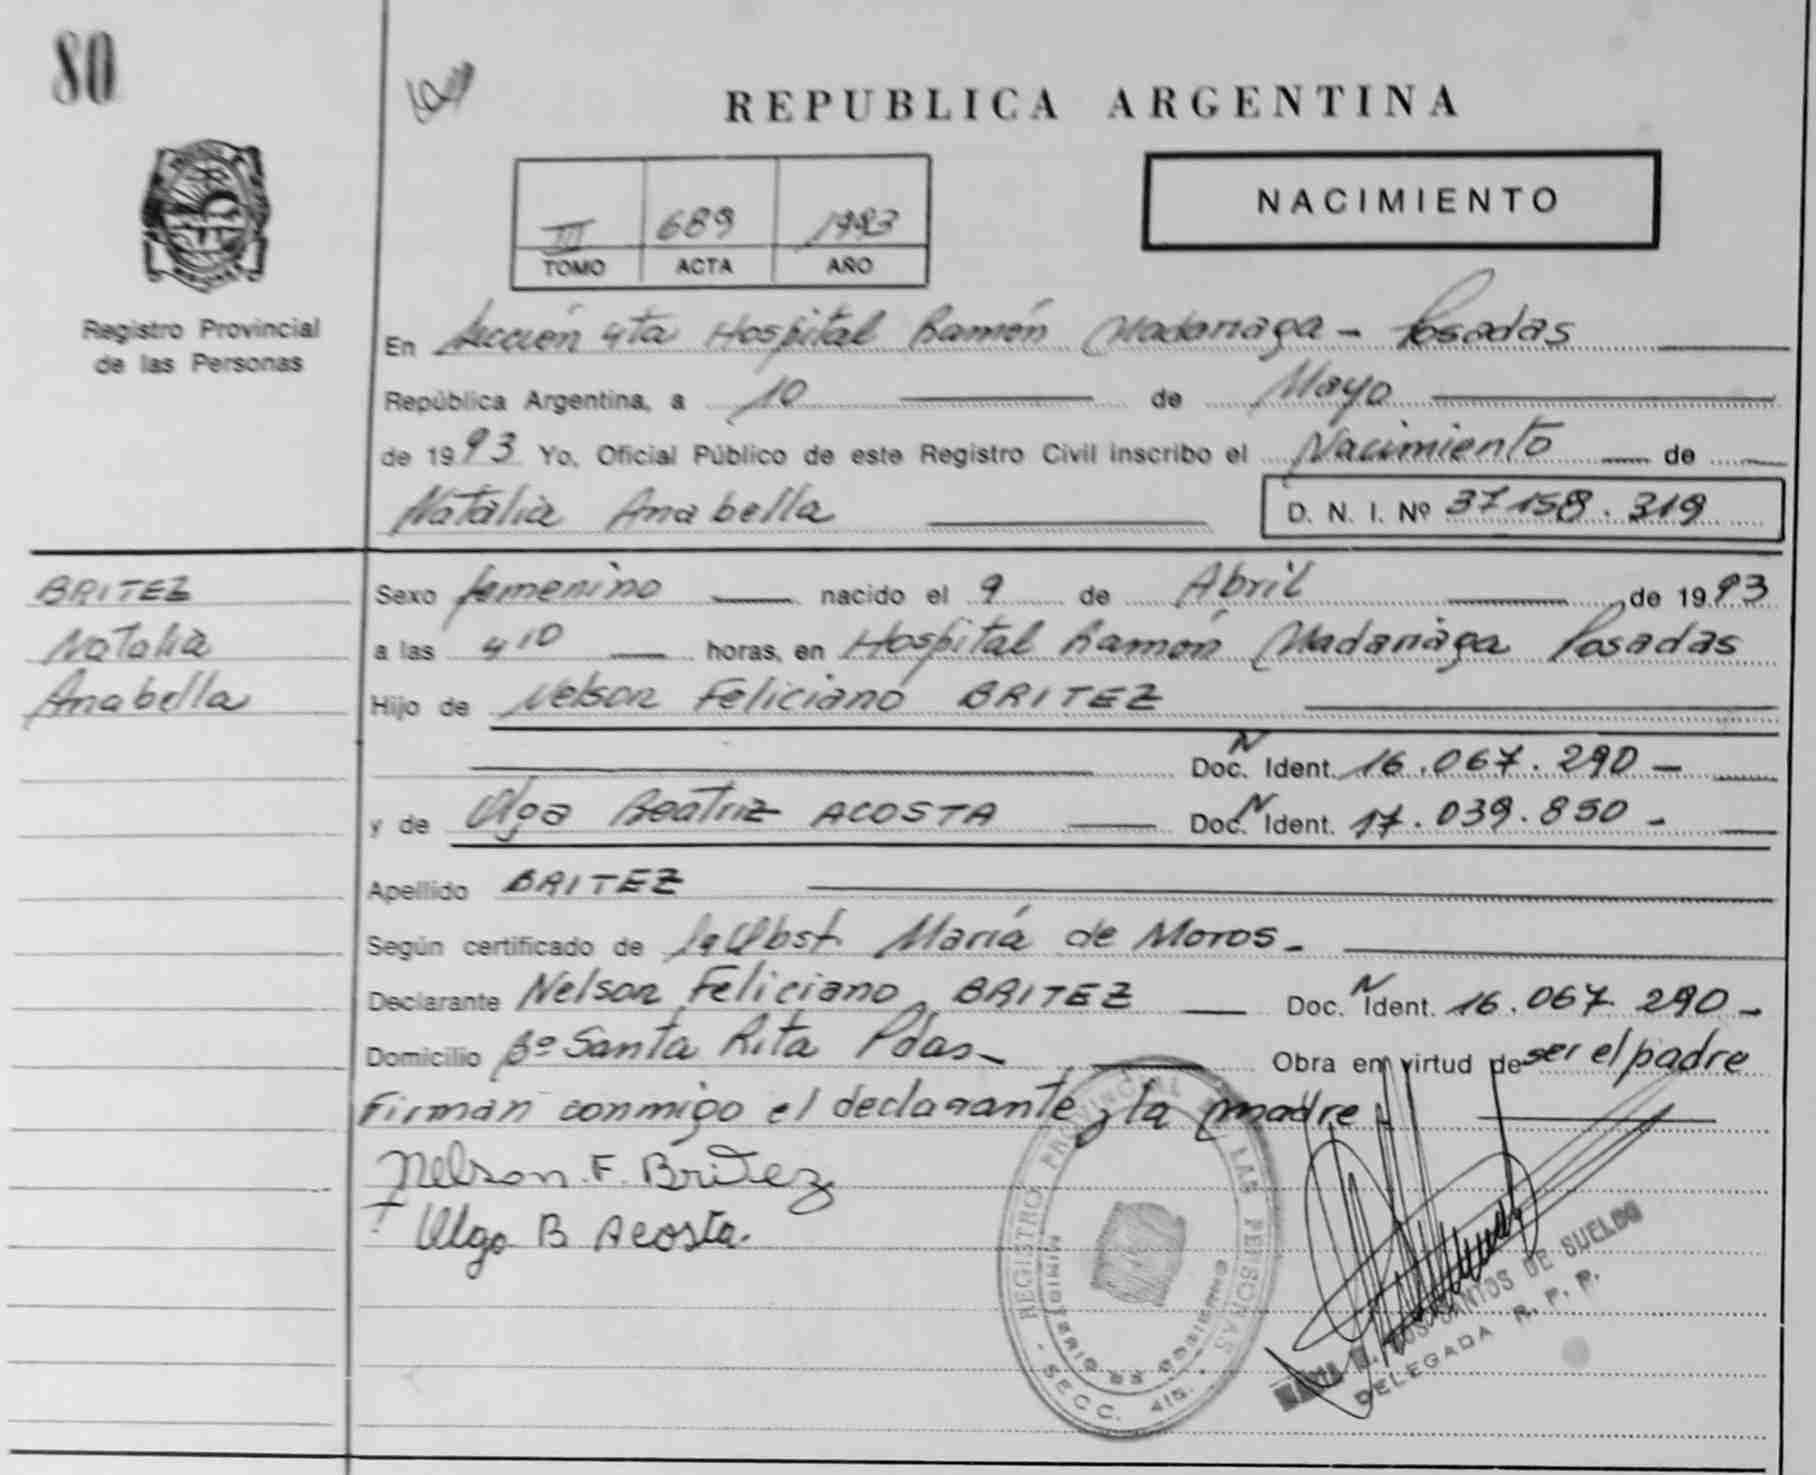 80
REPUBLICA ARGENTINA
NACIMIENTO
III 689 1993
TOMO ACTA AÑO
Registro Provincial
de las Personas
En Sección 4ta Hospital Ramón Madariaga - Posadas
República Argentina, a 10 de Mayo
de 1993 Yo, Oficial Público de este Registro Civil inscribo el Nacimiento de
Natalia Anabella D. N. I. Nº 37158.319
BRITEZ
Natalia
Anabella
Sexo femenino nacido el 9 de Abril de 1993
a las 4 10 horas, en Hospital Ramón Madariaga Posadas
Hijo de Nelson Feliciano BRITEZ
Doc. N Ident. 16.067.290 -
y de Olga Beatriz ACOSTA Doc. N Ident. 17.039.850 -
Apellido BRITEZ
Según certificado de la Obst. María de Moros -
Declarante Nelson Feliciano BRITEZ Doc. N Ident. 16.067.290 -
Domicilio Bº Santa Rita Pdas - Obra en virtud de ser el padre
Firman conmigo el declarante y la madre -
Nelson. F. Britez
Olga B Acosta.
REGISTRO PROVINCIAL DE LAS PERSONAS
MINISTERIO DE GOBIERNO
- SECC. 4ta. -
SANTOS DE SUELDO
DELEGADA R. P. P.